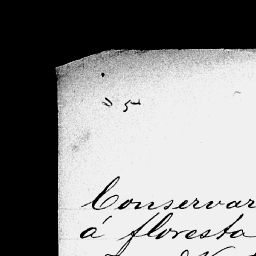 Conservar
á floresta